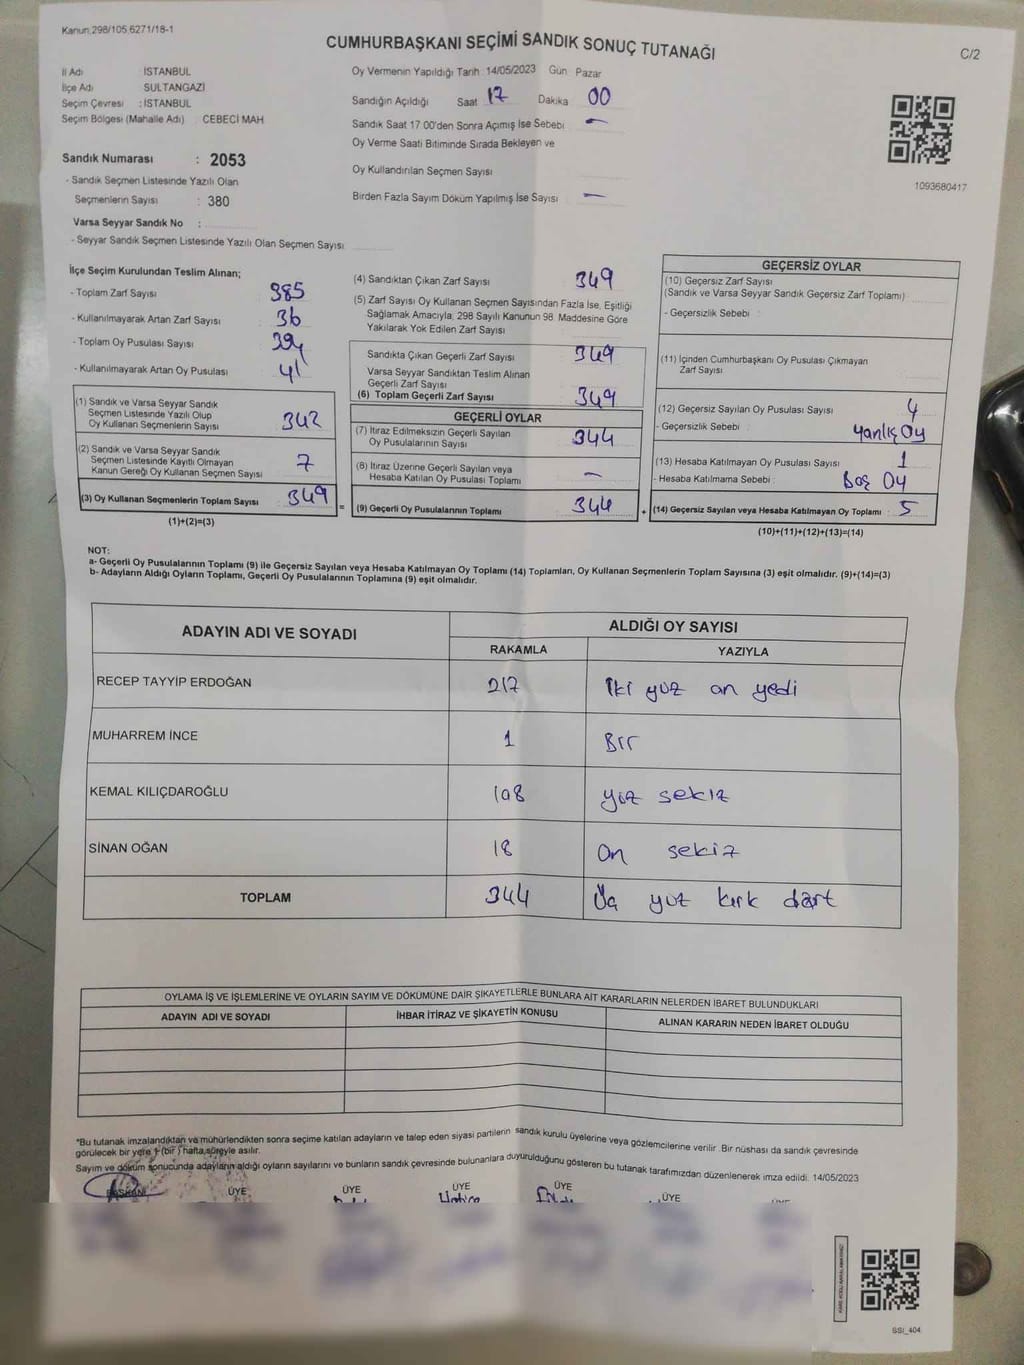 Kanun.298/105,6271/18-1
CUMHURBAŞKANI SEÇİMİ SANDIK SONUÇ TUTANAĞI
C/2
İl Adı İSTANBUL
İlçe Adı SULTANGAZİ
Seçim Çevresi : İSTANBUL
Seçim Bölgesi (Mahalle Adı) CEBECİ MAH
Sandık Numarası : 2053
- Sandık Seçmen Listesinde Yazılı Olan
Seçmenlerin Sayısı : 380
Varsa Seyyar Sandık No :
- Seyyar Sandık Seçmen Listesinde Yazılı Olan Seçmen Sayısı
Oy Vermenin Yapıldığı Tarih : 14/05/2023 Gün Pazar
Sandığın Açıldığı Saat 17 Dakika 00
Sandık Saat 17.00'den Sonra Açımış İse Sebebi –
Oy Verme Saati Bitiminde Sırada Bekleyen ve
Oy Kullandırılan Seçmen Sayısı
Birden Fazla Sayım Döküm Yapılmış İse Sayısı –
1093680417
İlçe Seçim Kurulundan Teslim Alınan;
- Toplam Zarf Sayısı 385
- Kullanılmayarak Artan Zarf Sayısı 36
- Toplam Oy Pusulası Sayısı
- Kullanılmayarak Artan Oy Pusulası 41
(1) Sandık ve Varsa Seyyar Sandık
Seçmen Listesinde Yazılı Olup
Oy Kullanan Seçmenlerin Sayısı 342
(2) Sandık ve Varsa Seyyar Sandık
Seçmen Listesinde Kayıtlı Olmayan
Kanun Gereği Oy Kullanan Seçmen Sayısı 7
(3) Oy Kullanan Seçmenlerin Toplam Sayısı 349
(1)+(2)=(3)
(4) Sandıktan Çıkan Zarf Sayısı 349
(5) Zarf Sayısı Oy Kullanan Seçmen Sayısından Fazla İse, Eşitliği
Sağlamak Amacıyla, 298 Sayılı Kanunun 98. Maddesine Göre
Yakılarak Yok Edilen Zarf Sayısı
Sandıkta Çıkan Geçerli Zarf Sayısı 349
Varsa Seyyar Sandıktan Teslim Alınan
Geçerli Zarf Sayısı
(6) Toplam Geçerli Zarf Sayısı 349
GEÇERLİ OYLAR
(7) İtiraz Edilmeksizin Geçerli Sayılan
Oy Pusulalarının Sayısı 344
(8) İtiraz Üzerine Geçerli Sayılan veya
Hesaba Katılan Oy Pusulası Toplamı –
= (9) Geçerli Oy Pusulalarının Toplamı 344 +
GEÇERSİZ OYLAR
(10) Geçersiz Zarf Sayısı
(Sandık ve Varsa Seyyar Sandık Geçersiz Zarf Toplamı)
- Geçersizlik Sebebi :
(11) İçinden Cumhurbaşkanı Oy Pusulası Çıkmayan
Zarf Sayısı
(12) Geçersiz Sayılan Oy Pusulası Sayısı 4
- Geçersizlik Sebebi : Yanlış Oy
(13) Hesaba Katılmayan Oy Pusulası Sayısı 1
- Hesaba Katılmama Sebebi : Boş Oy
(14) Geçersiz Sayılan veya Hesaba Katılmayan Oy Toplamı : 5
(10)+(11)+(12)+(13)=(14)
NOT:
a- Geçerli Oy Pusulalarının Toplamı (9) ile Geçersiz Sayılan veya Hesaba Katılmayan Oy Toplamı (14) Toplamları, Oy Kullanan Seçmenlerin Toplam Sayısına (3) eşit olmalıdır. (9)+(14)=(3)
b- Adayların Aldığı Oyların Toplamı, Geçerli Oy Pusulalarının Toplamına (9) eşit olmalıdır.
ADAYIN ADI VE SOYADI ALDIĞI OY SAYISI
RAKAMLA YAZIYLA
RECEP TAYYİP ERDOĞAN 217 İki yüz on yedi
MUHARREM İNCE 1 Bir
KEMAL KILIÇDAROĞLU 108 yüz sekiz
SİNAN OĞAN 18 on sekiz
TOPLAM 344 Üç yüz kırk dört
OYLAMA İŞ VE İŞLEMLERİNE VE OYLARIN SAYIM VE DÖKÜMÜNE DAİR ŞİKAYETLERLE BUNLARA AİT KARARLARIN NELERDEN İBARET BULUNDUKLARI
ADAYIN ADI VE SOYADI İHBAR İTİRAZ VE ŞİKAYETİN KONUSU ALINAN KARARIN NEDEN İBARET OLDUĞU
*Bu tutanak imzalandıktan ve mühürlendikten sonra seçime katılan adayların ve talep eden siyasi partilerin sandık kurulu üyelerine veya gözlemcilerine verilir. Bir nüshası da sandık çevresinde
görülecek bir yere 1 (bir ) hafta süreyle asılır.
Sayım ve döküm sonucunda adayların aldığı oyların sayılarını ve bunların sandık çevresinde bulunanlara duyurulduğunu gösteren bu tutanak tarafımızdan düzenlenerek imza edildi. 14/05/2023
BAŞKAN ÜYE ÜYE ÜYE ÜYE ÜYE
SSI_404